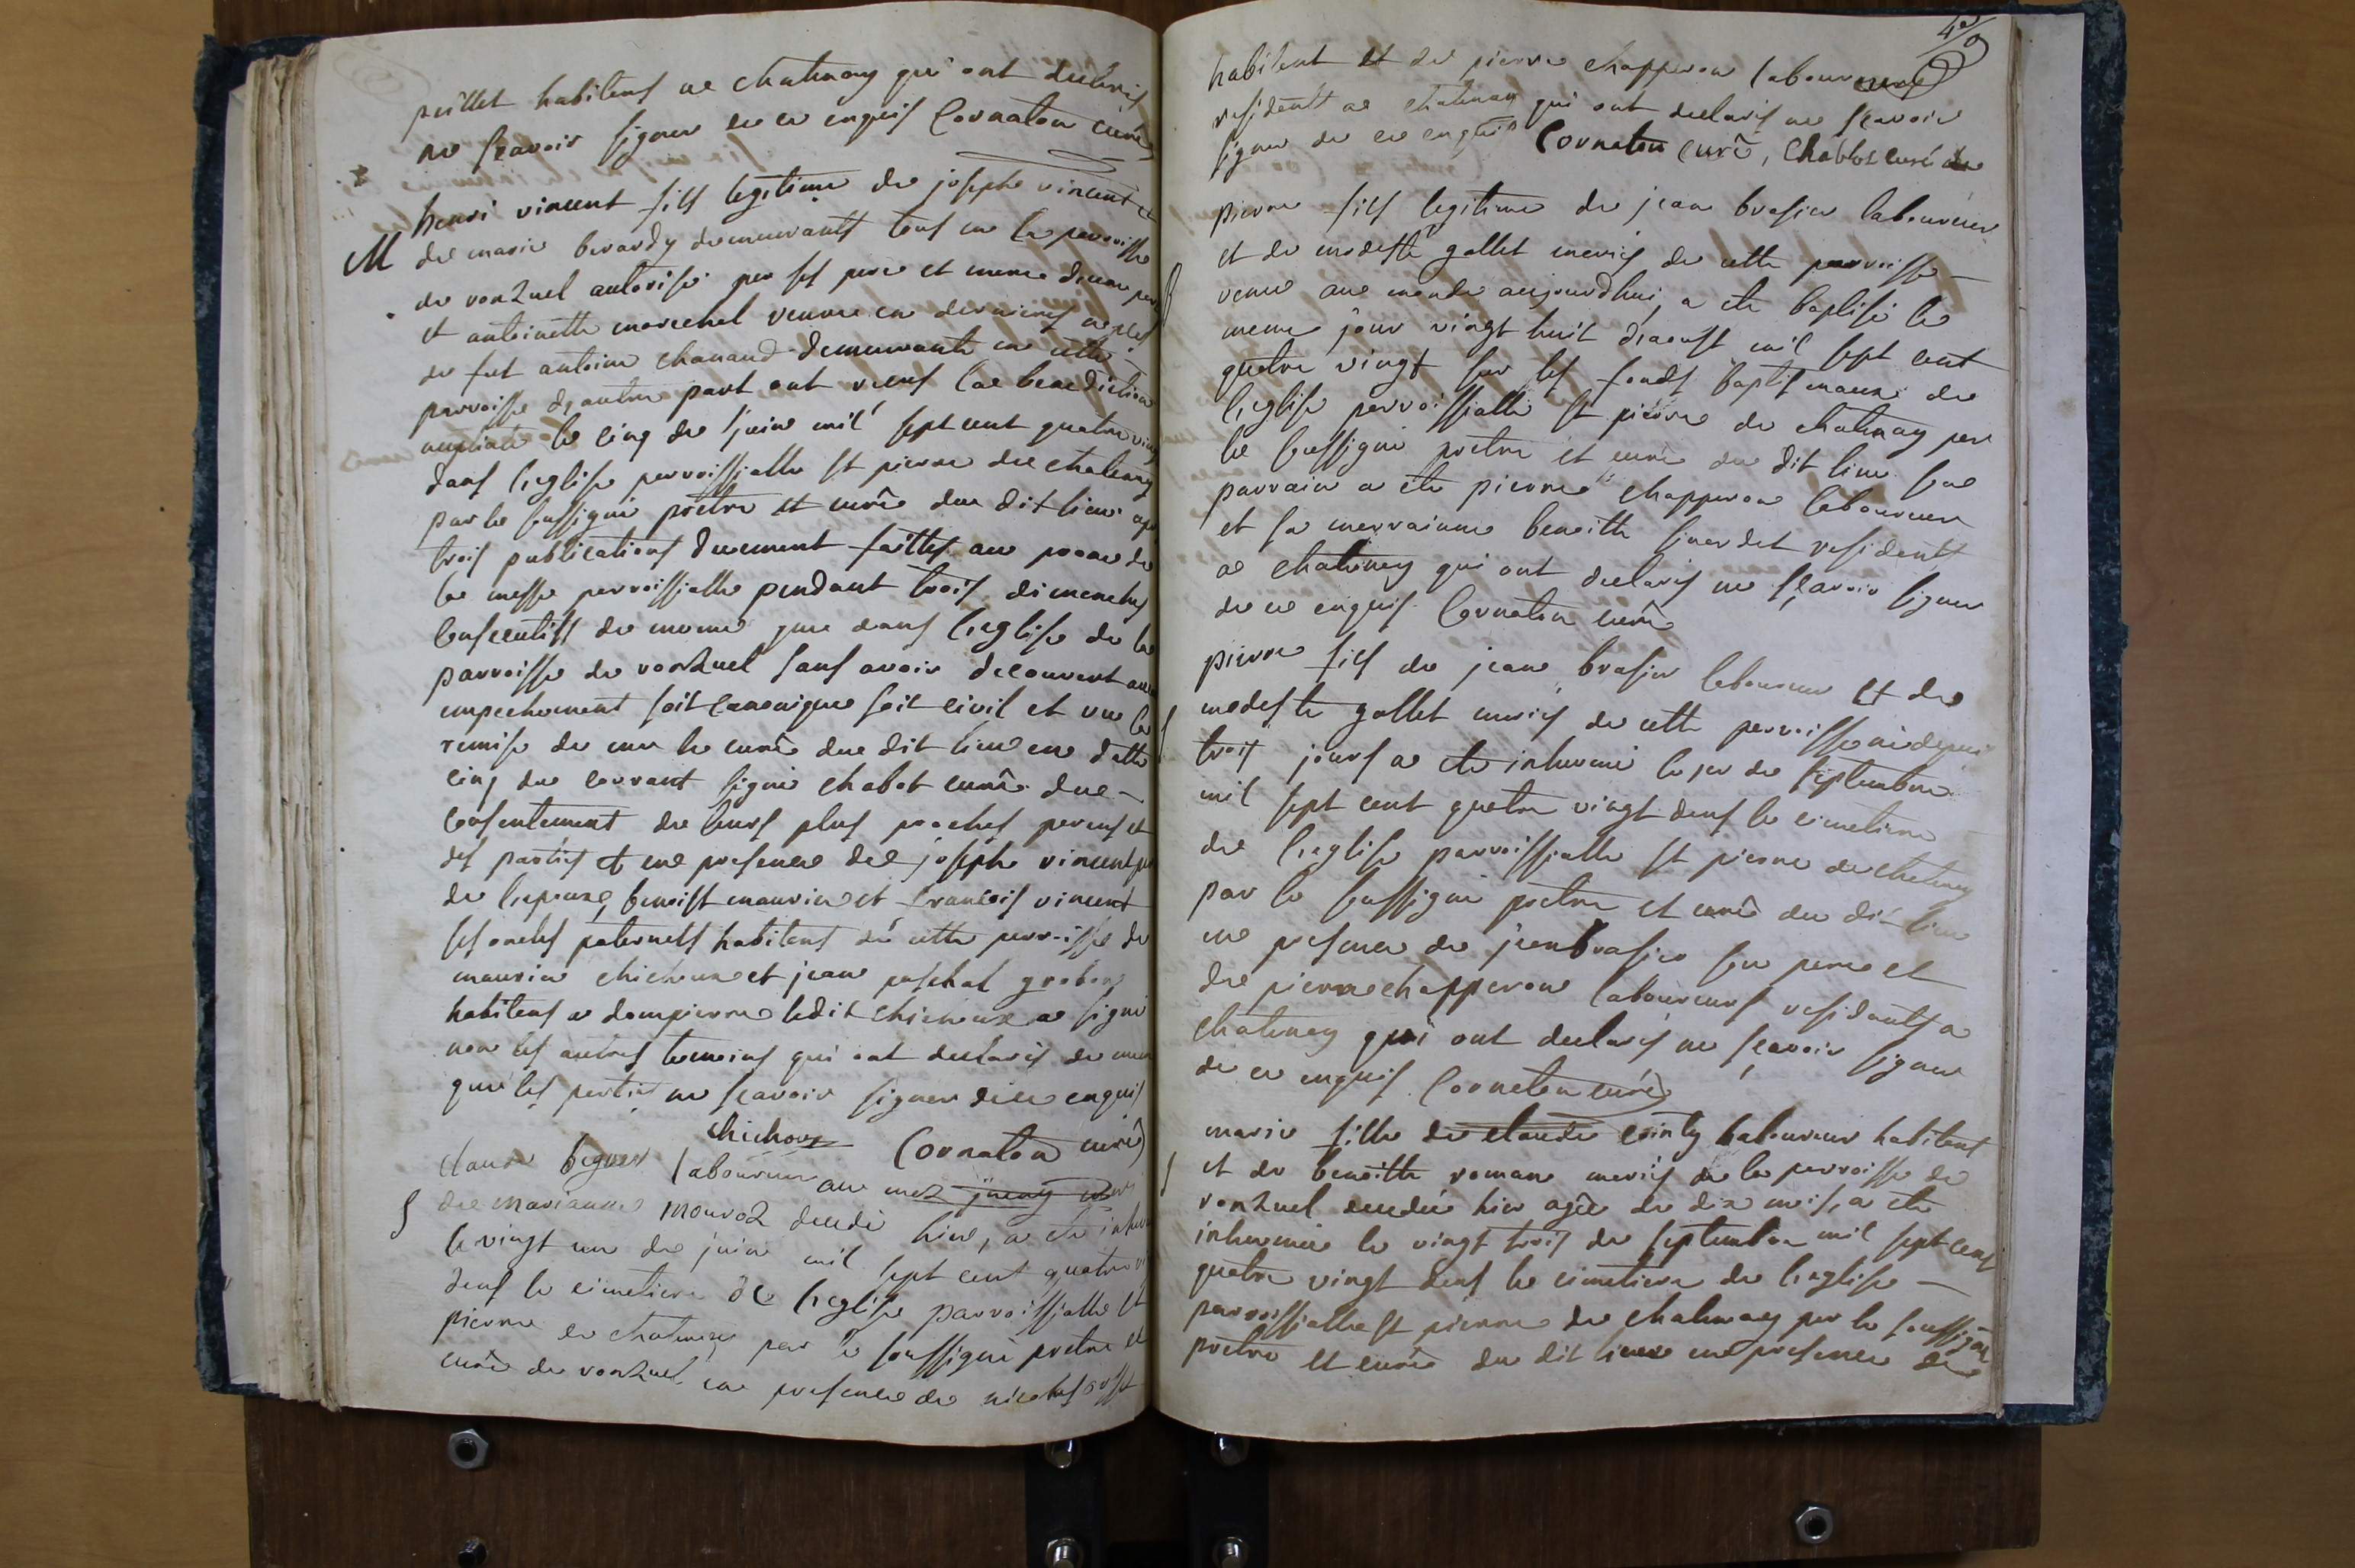 peillet habitens ae chatenay qui ont declarés
ne sçavoir signer de ce enquis Cornaton curé
henri vincent fils legitime de joseph vincent et
M de marie berardy demeurants tous en la parroisse
de vonzuel autorisé per ses pere et mere d'une part
et antoinette marechal veuve en dernieres nopces
de fut antoine chanaud demeurante en cette
parroisse d'autre part ont reeus lae benediction
nuptiale le cinq de juin mil sept cent quatre ving
dans l'eglise parroissialle st pierre de chatenay
par le sussigné prêtre et curé du dit lieu apr
trois publications duement faittes au prone de
la messe parroissialle pendant trois dimenches
consecutifs de meme que dans l'eglise de la
parroisse de vonzuel sans avoir decouvert aucu
empechement soit canonique soit civil et vue la
remise de mr le curé du dit lieu en datte
cinq du courant signé chabot curé due
consentement de leurs plus proches perens et
des parties et en presence de joseph vincent pe
de l'epoux, benoist maurin et francois vincent
ses oncles paternels habitens de cette perroisse de
maurin chichoux et jean paschal grobon
habitens a dompierre ledit chichoux a signé
non les autres temoins qui ont declarés de mem
que les parties ne sçavoir signer de ce enquis
chichoux Cornaton curé
claude laboureur aue mez
S de marianne mouroz decedé hier, a ete inhum
le vingt un de juin mil sept cent quatre vi
dens le cimetiere de l'eglise parroissialle st
pierre de chatenay par le soussigné pretre et
curé de vonzuel en presence de nicolas
habitent et de pierre chapperon laboureurs
residentt ae chatenay qui ont declarés ne sçavoir
signer de ce enquis Cornaton curé, Chabot curé
pierre fils legitime de jean brasier laboureur
et de modeste gollet mariés de cette parroisse
venu aue monde aujourdhui, a ete baptisé le
meme jour vingt huit d'aoust mil sept cent
quatre vingt sur les fonds baptismaux de
l'eglise parroissialle st pierre de chatenay per
le sussigné pretre et curé du dit lieu son
parrain a ete pierre chapperon laboureur
et sa merrainne benoitte residentt
ae chatenay qui ont declarés ne sçavoir signer
de ce enquis Cornaton curé
pierre fils de jean brasier laboureur et de
S modeste gollet mariés de cette perroisse né depuis
trois jours a ete inhumé le 1er de septembre
mil sept cent quatre vingt dens le cimetiere
de l'eglise parroissialle st pierre de chatenay
par le sussigné pretre et curé du dit lieu
en presence de jean brasier son pere et
de pierre chapperon laboureurs residentts a
chatenay qui ont declarés ne sçavoir signer
de ce enquis Cornaton curé
marie fille de claude laboureur habitent
S et de benoitte roman mariés de la perroisse de
vonzuel decedée hier agée de dix mois, a ete
inhumée le vingt trois de septembre mil sept cent
quatre vingt dens le cimetiere de l'eglise
parroissialle st pierre de chatenay per le soussigné
pretre et curé du dit lieu en presence de